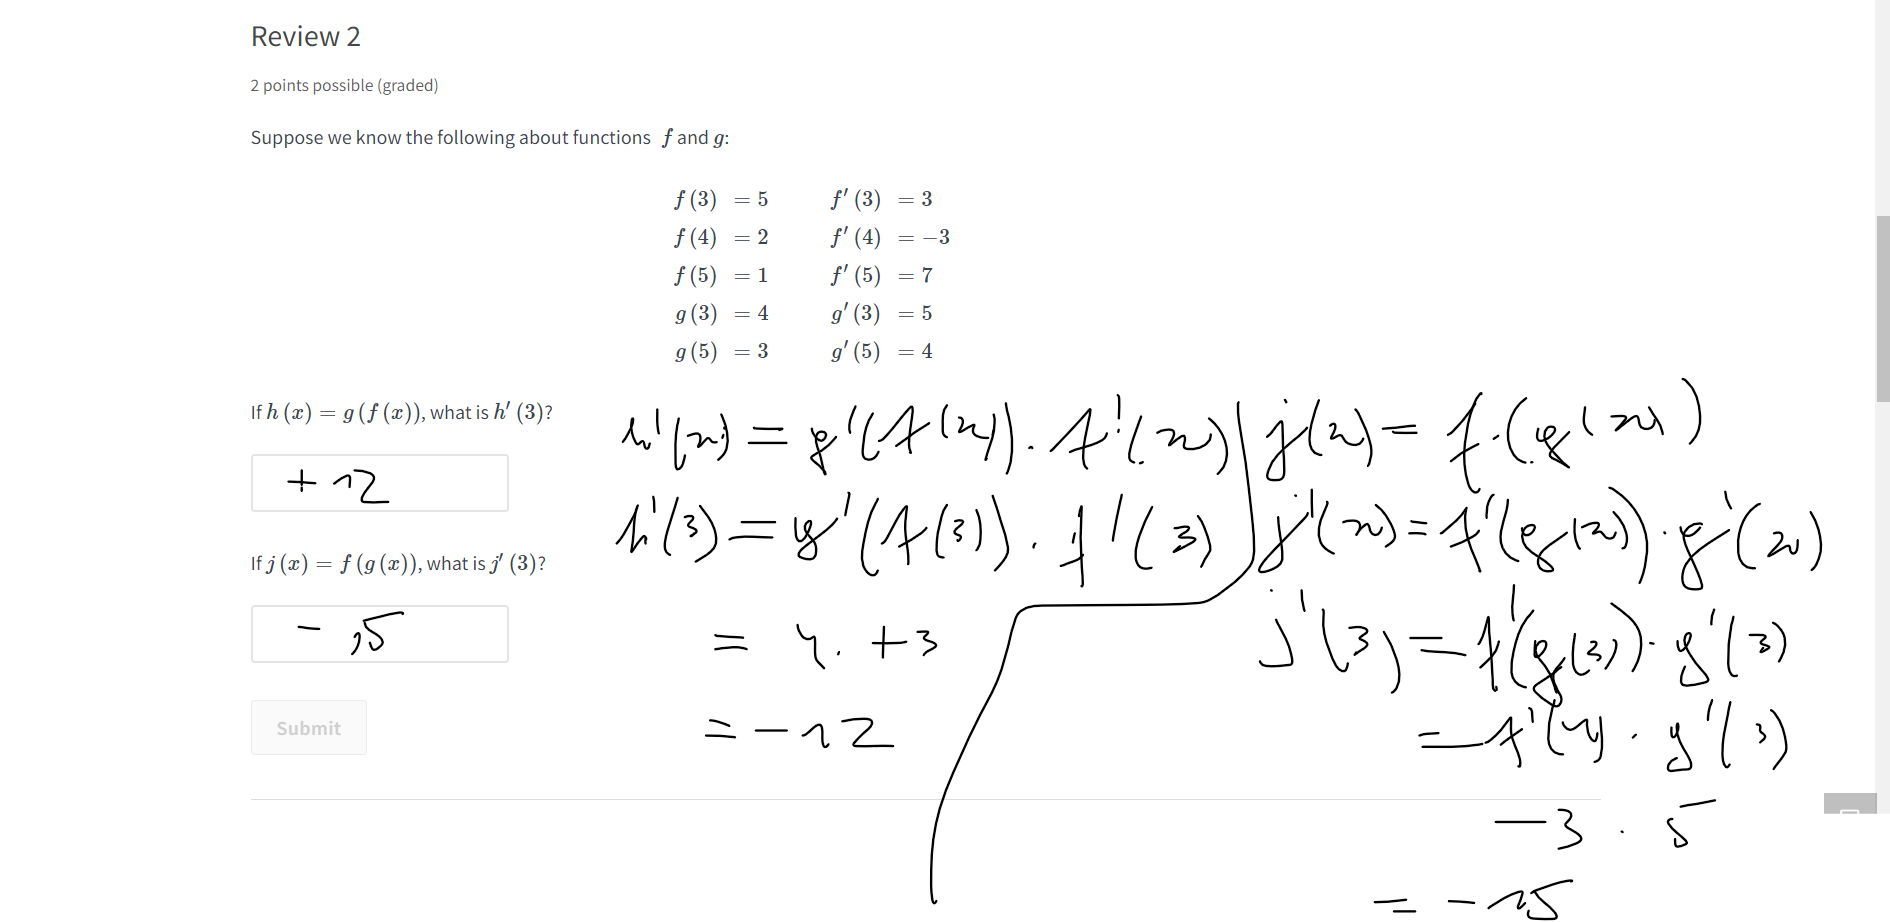 Review 2
2 points possible (graded)
Suppose we know the following about functions f and g:
f (3) = 5 f′ (3) = 3
f (4) = 2 f′ (4) = −3
f (5) = 1 f′ (5) = 7
g (3) = 4 g′ (3) = 5
g (5) = 3 g′ (5) = 4
If h (x) = g (f (x)), what is h′ (3)?
+ 12
If j (x) = f (g (x)), what is j′ (3)?
- 15
Submit
h'(x) = g'(f(x)) . f'(x)
h'(3) = g'(f(3)) . f'(3)
= 4 . +3
= - 12
j(x) = f.(g(x))
j'(x) = f'(g(x)) . g'(x)
j'(3) = f'(g(3)) . g'(3)
= f'(4) . g'(3)
-3 . 5
= - 15